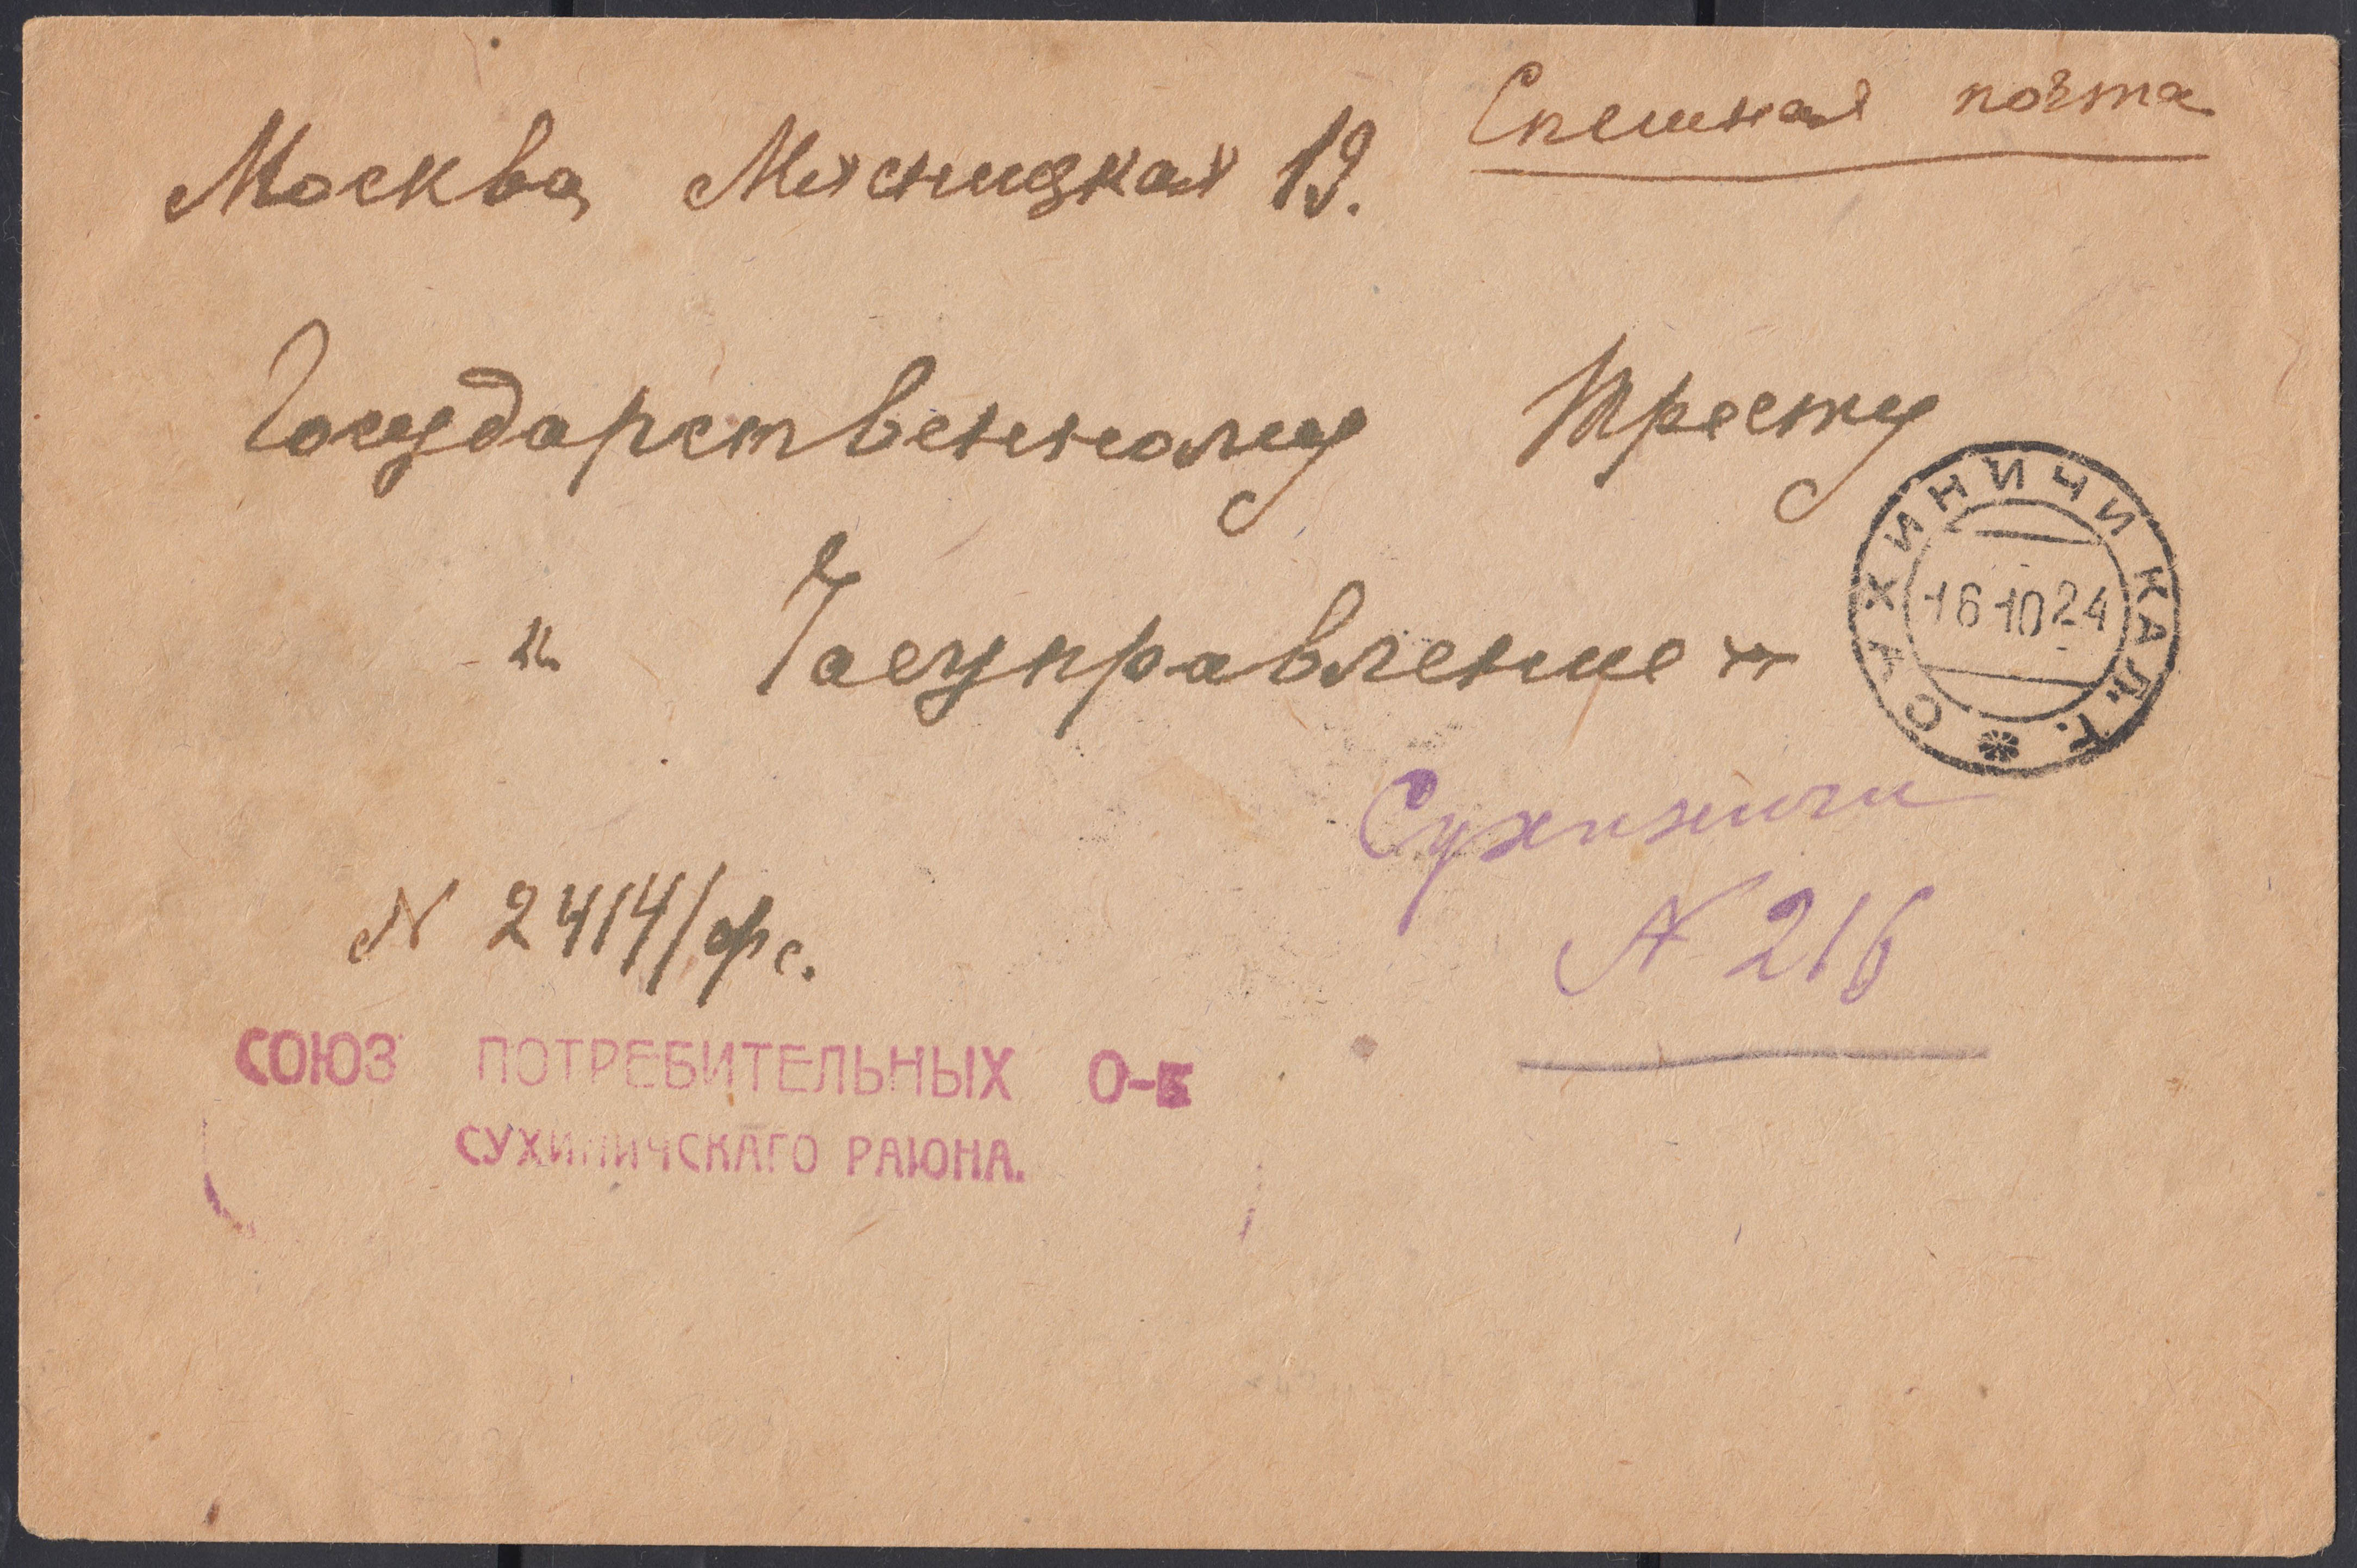 Спешная почта
Москва, Мясницкая 19.
Государственному Тресту
"Чаеуправление"
СУХИНИЧИ КАЛ. Г.
16 10 24
Сухиничи
N 216
N 2414/фс.
СОЮЗ ПОТРЕБИТЕЛЬНЫХ О-В
СУХИНИЧСКАГО РАЙОНА.